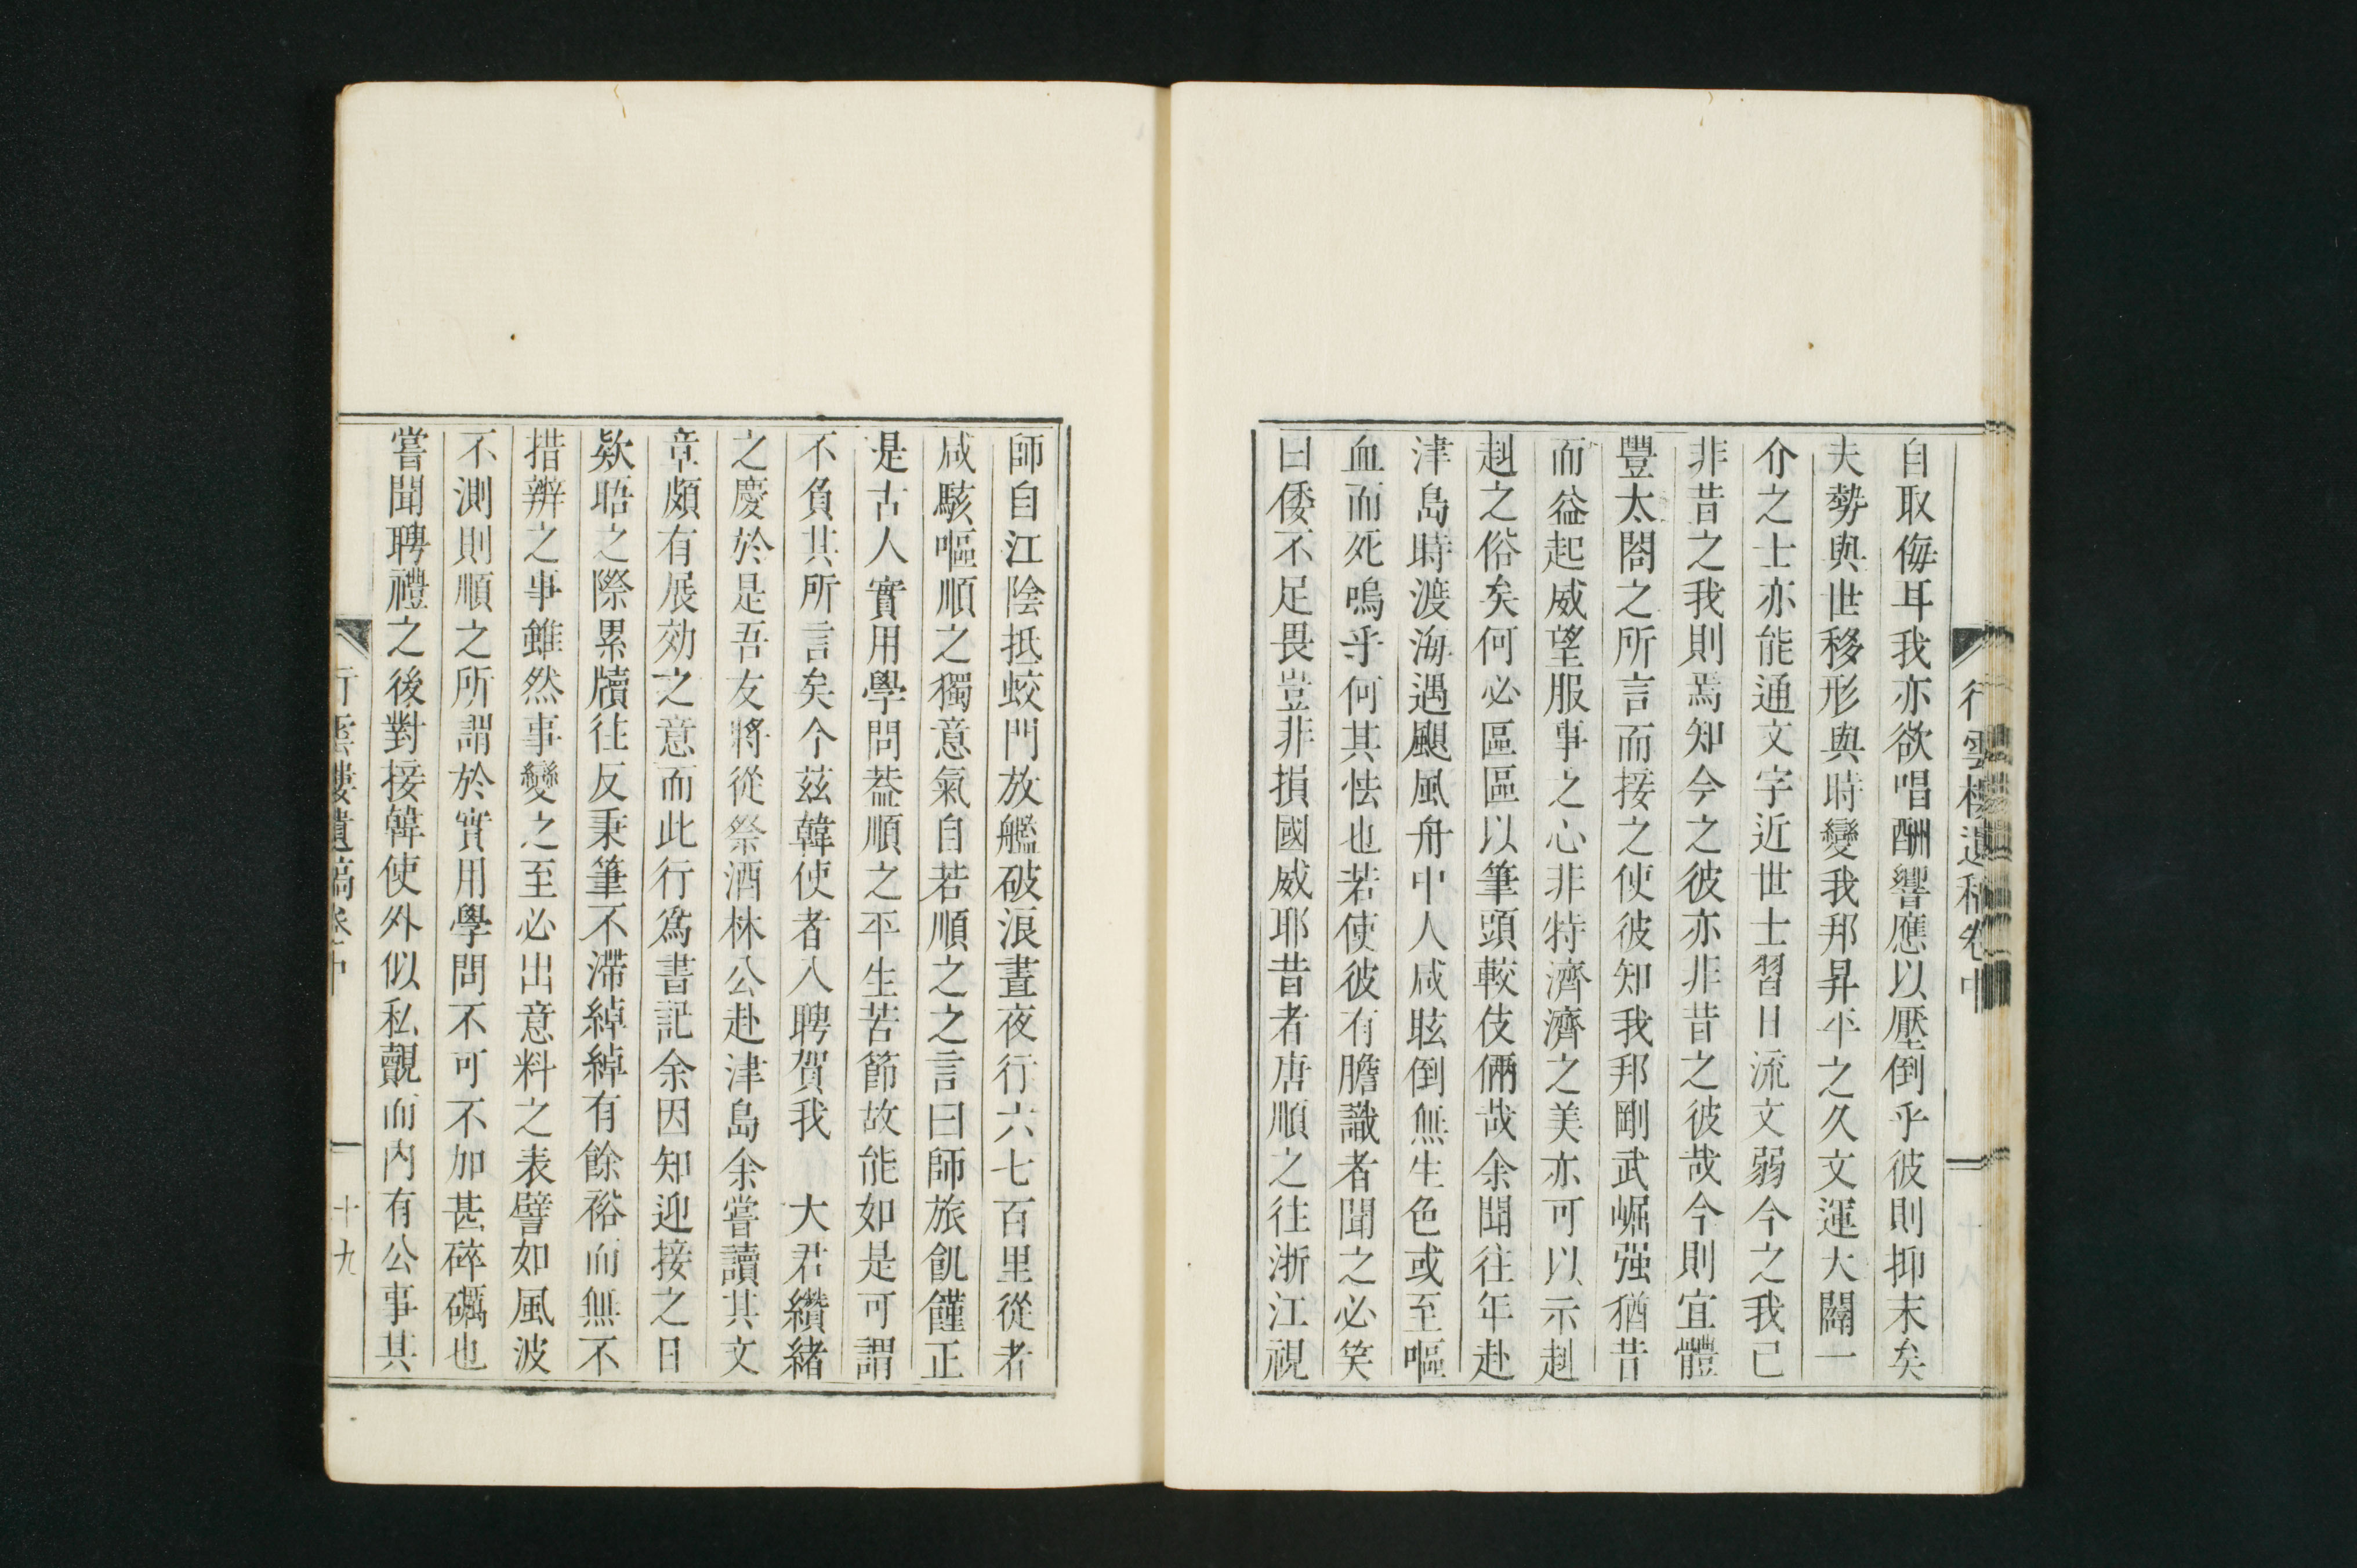 自取侮耳我亦欲唱酬響應以壓倒乎彼則抑末矣
夫勢與世移形與時變我邦昇平之久文運大闢一
介之士亦能通文字近世士習日流文弱今之我已
非昔之我則焉知今之彼亦非昔之彼哉今則宜體
豐太閤之所言而接之使彼知我邦剛武崛强猶昔
而益起威望服事之心非特濟濟之美亦可以示赳
赳之俗矣何必區區以筆頭較伎倆哉余聞往年赴
津島時渡海遇颶風舟中人咸眩倒無生色或至嘔
血而死嗚乎何其怯也若使彼有膽識者聞之必笑
曰倭不足畏豈非損國威耶昔者唐順之往浙江視
行雲樓遺稿卷中
十八
師自江陰抵蛟門放艦破浪晝夜行六七百里從者
咸駭嘔順之獨意氣自若順之之言曰師旅飢饉正
是古人實用學問葢順之平生苦節故能如是可謂
不負其所言矣今茲韓使者入聘賀我 大君纘緒
之慶於是吾友將從祭酒林公赴津島余嘗讀其文
章頗有展効之意而此行爲書記余因知迎接之日
欵晤之際累牘往反秉筆不滯綽綽有餘裕而無不
措辨之事雖然事變之至必出意料之表譬如風波
不測則順之所謂於實用學問不可不加甚碎礪也
嘗聞聘禮之後對接韓使外似私覿而內有公事其
行雲樓遺稿卷中
十九